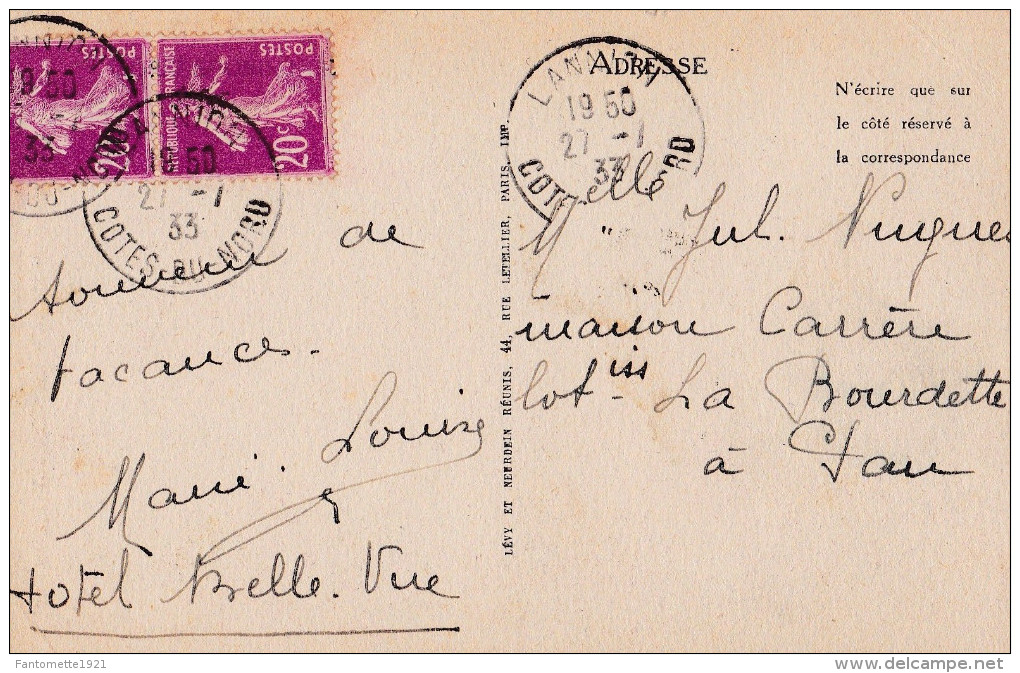 POSTES
POSTES
REPUBLIQUE FRANÇAISE
20c
20c
19 50
33
DU-NORD
LANNION
19 50
27 -7
33
COTES-DU-NORD
LANNION
19 50
27 -7
33
COTES NORD
ADRESSE
N'écrire que sur
le côté réservé à
la correspondance
LÉVY ET NEURDEIN RÉUNIS, 44, RUE LETELLIER, PARIS, IMP.
de
vacances.
Marie. Louise
Hotel Belle-Vue
Melle Jul. Nugues
maison Carrère
lotiss La Bourdette
à Pau
Fantometten1921
delcampe.net